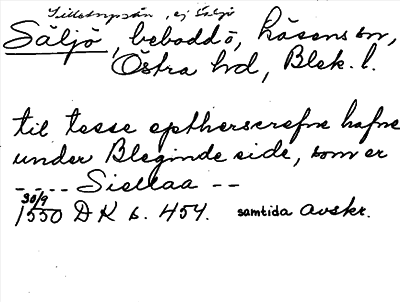 ej Säljö
Säljö, bebodd ö, Hässensn,
Östra hd, Blek. l.
til tesse eptherscrefne hafne
under Bleginde side, som er
---- Siellaa --
30/9
1550 DK s. 454. samtida avskr.